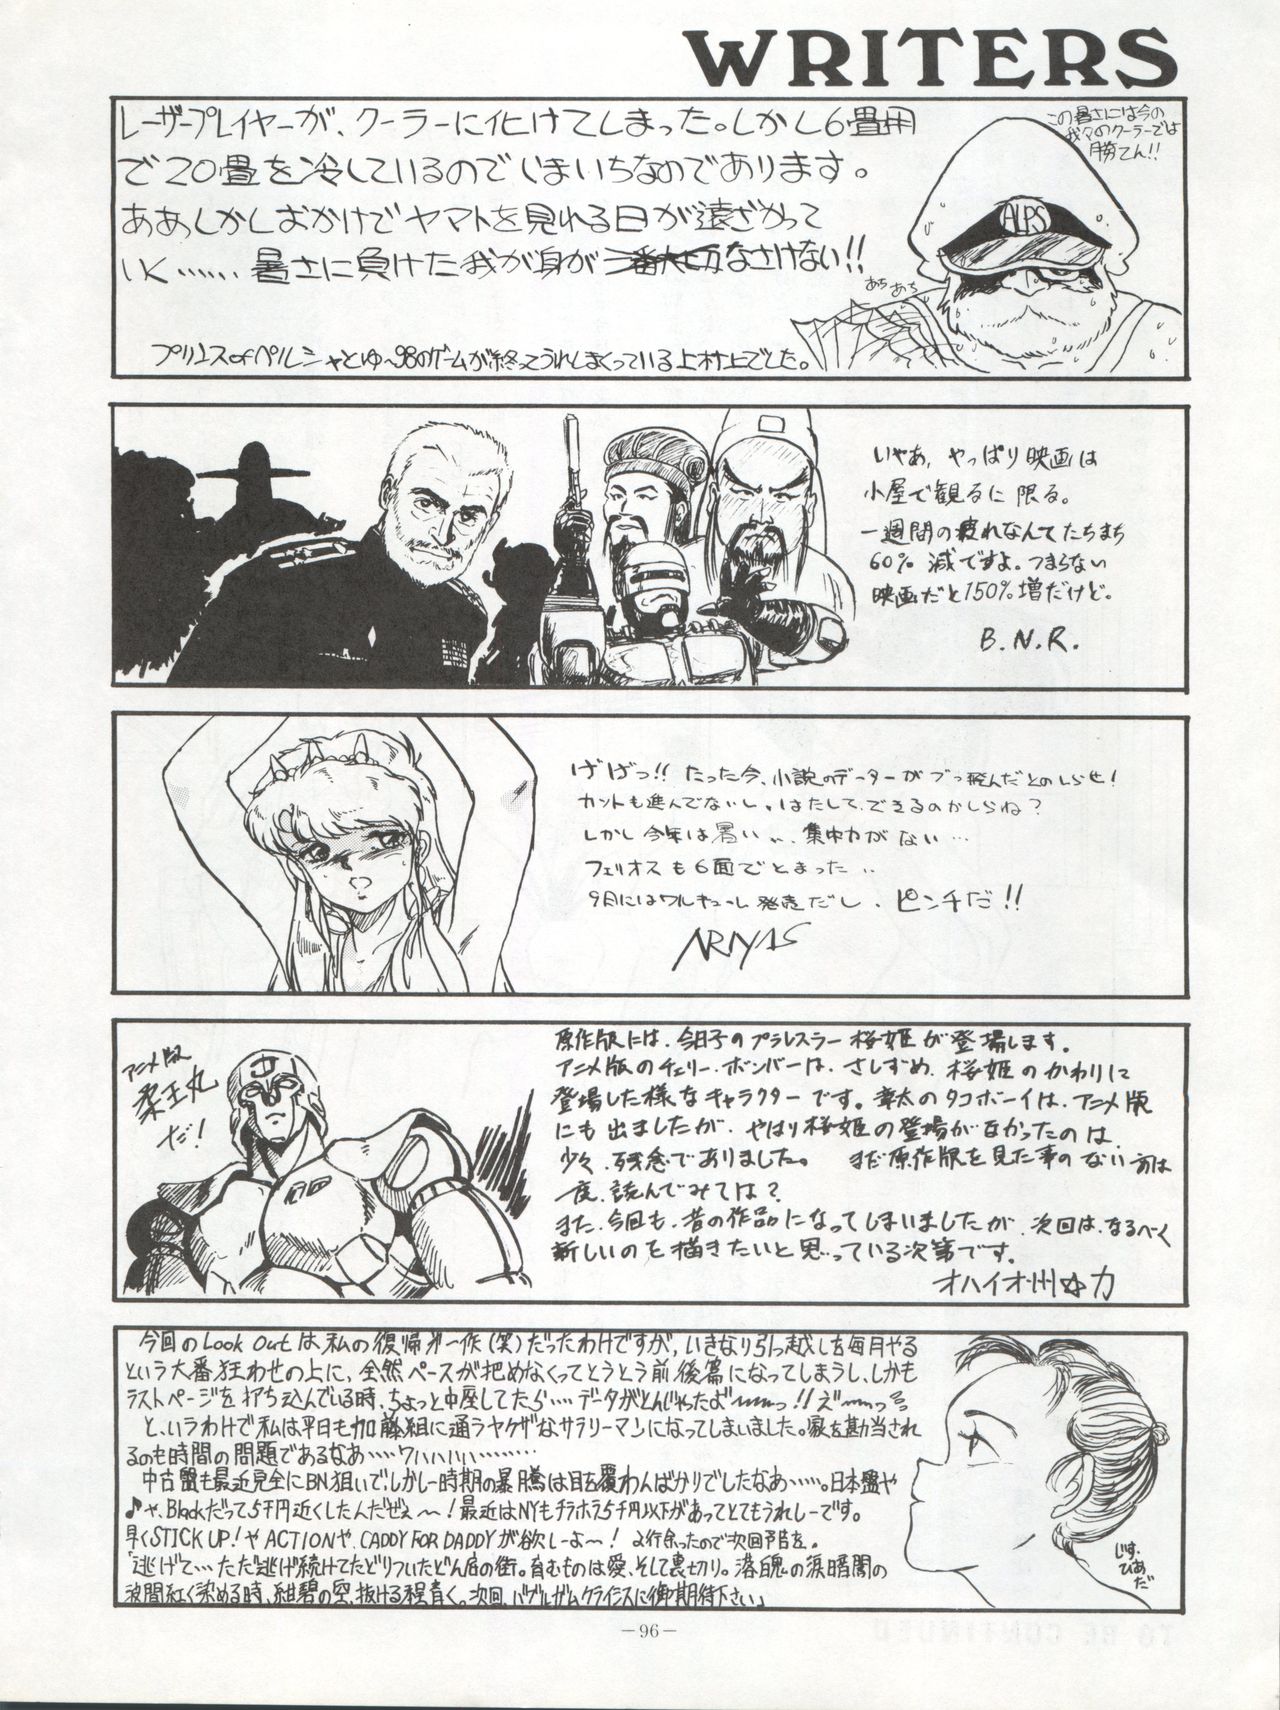 WRITERS
レーザープレイヤーが、クーラーに化けてしまった。しかし6畳用
で20畳を冷しているのでいまいちなのであります。
ああしかしおかげでヤマトを見れる日が遠ざかって
いく……、暑さに負けた我が身がなさけない!!
プリンスofペルシャとゆ〜98のゲームが終ってうれしまくっている上村上でした。
この暑さには今の
我々のクーラーでは
勝てん!!
ALPS
あち あち
いやあ、やっぱり映画は
小屋で観るに限る。
一週間の疲れなんてたちまち
60%減ですよ。つまらない
映画だと150%増だけど。
B.N.R.
げげっ!! たった今、小説のデーターがブッ飛んだとのしらせ!
カットも進んでないし、はたして、できるのかしらね?
しかし今年は暑い、、集中力がない…
フェリオスも6面でとまった、、
9月にはワルキューレ発売だし、ピンチだ!!
ARIYAS
アニメ版
柔王丸
だ!
原作版には、今日子のプラレスラー桜姫が登場します。
アニメ版のチェリー・ボンバーは、さしずめ、桜姫のかわりに
登場した様なキャラクターです。章太のタコボーイは、アニメ版
にも出ましたが、やはり桜姫の登場がなかったのは、
少々、残念でありました。 まだ原作版を見た事のない方は
一度、読んでみては?
また、今回も、昔の作品になってしまいましたが、次回は、なるべく
新しいのを描きたいと思っている次第です。
オハイオ州☆力
今回のLook Outは私の復帰第一作(笑)だったわけですが、いきなり引っ越しを毎月やる
という大番狂わせの上に、全然ペースが把めなくってとうとう前後篇になってしまうし、しかも
ラストページを打ち込んでいる時、ちょっと中座してたら……データがとんじゃったよ〜〜っ!!え〜〜っ
と、いうわけで私は平日も加藤組に通うヤクザなサラリーマンになってしまいました。家を勘当され
るのも時間の問題であるなあ……ワハハハハ…………
中古盤も最近完全にBN狙いで、しかし一時期の暴騰は目を覆わんばかりでしたなあ……。日本盤や
♪や、Blackだって5千円近くしたんだぜぇ〜!最近はNYもチラホラ5千円以下があってとてもうれしーです。
早くSTICK UP!やACTIONや、CADDY FOR DADDYが欲しーよ〜! 2行余ったので次回予告を。
「逃げて…ただ逃げ続けてたどりついたどん底の街。育むものは愛、そして裏切り。落魄の涙暗闇の
波間紅く染める時、紺碧の空、抜ける程青く。次回、バブルガムクライシスに御期待下さい」
じす、
ぴあだ
—96—